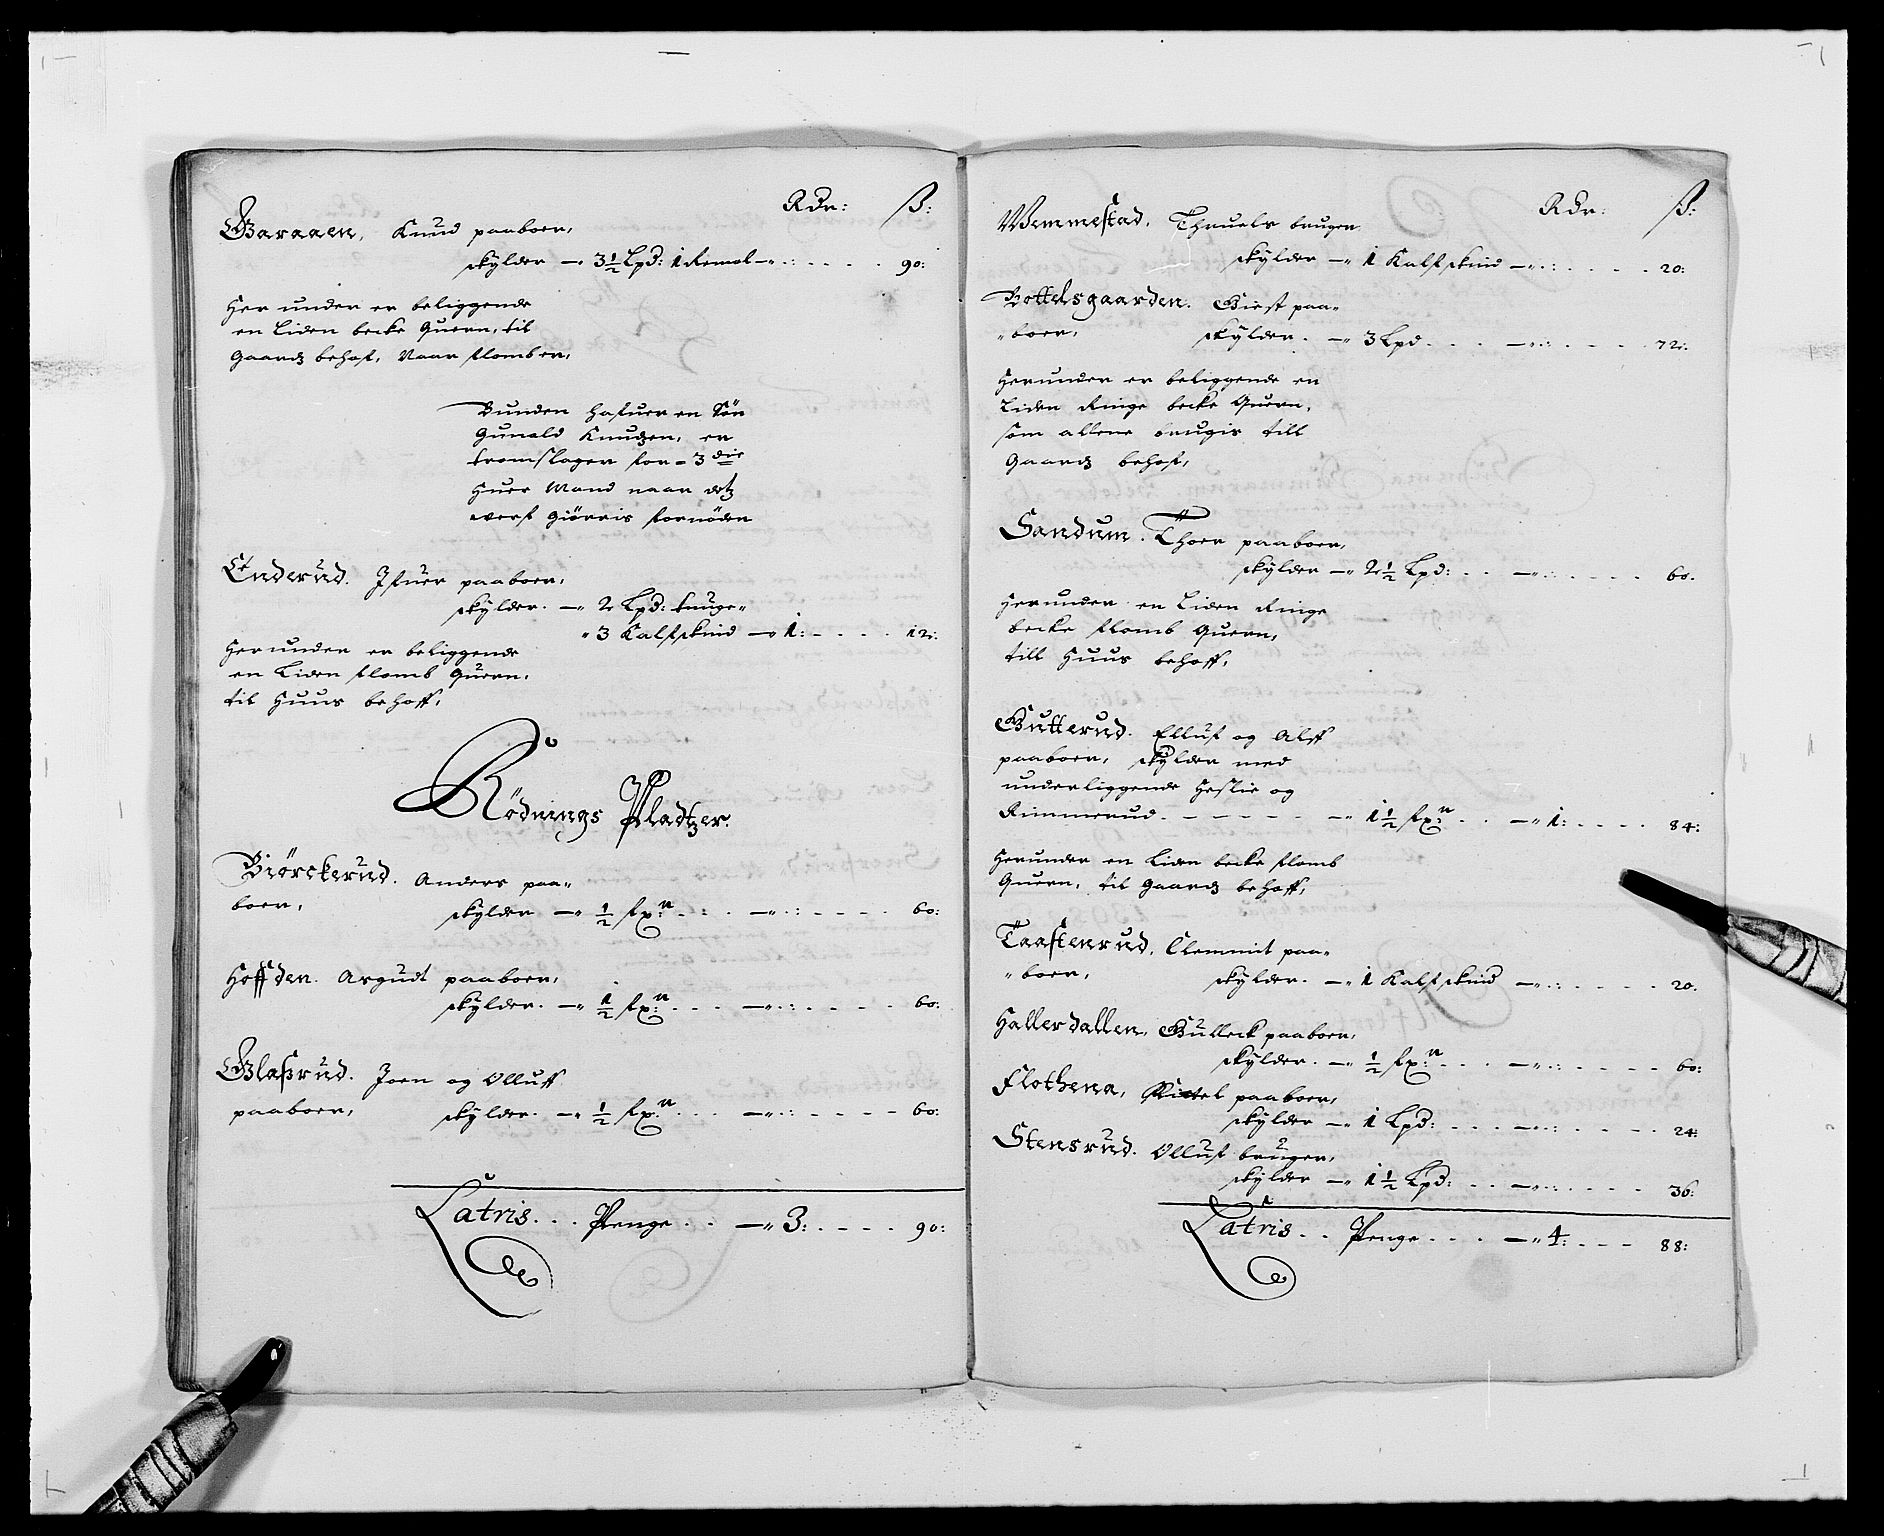 Rdr: ß:
Garaaen, Knud paaboer,
skylder — 3½ Lpd: 1 Remol —":: - - - - 90:
Her under er beliggende
en Liden becke Quern, til
Gaardz behof, Naar flomb er,
Bunden hafuer en Sön
Gunold Knudzen, er
tromslager for - 3 die
Huer Mand naar detz
werf giörris fornöden
Enderud. Ifuer paaboer,
skylder. —" 2 Lpd: tunge"
" 3 Kalfskind —" 1: - - - - 12:
Her under er beliggende
en Liden flomb Quern,
til Huus behoff,
Rödnings Pladtzer.
Biörckerud. Anders paa"
boer, skylder —" ½ fx:n - - - —":: - - - - 60:
Hoffden. Asgudt paaboer,
skylder. —" ½ fx:n - - - —":: - - - - 60:
Glaßrud. Joen og Olluff
paaboer, skylder. —" ½ fx:n - - - —":: - - - - 60:
Latris. . . Penge - - —" 3: - - - - 90:
Rdr: ß:
Wemmestad, Thruels bruger
skylder —" 1 Kalfskind —":: - - - - 20:
Bottelsgaarden. Giest paa"
"boer, skylder. —" 3 Lpd - - - —":: - - - - 72:
Herunder er beliggende en
Liden Ringe becke Quern,
som allene brugis till
Gaardz behof,
Sandum. Thoer paaboer,
skylder —" 2½ Lpd: - - —":: - - - - 60.
Herunder en Liden Ringe
becke flomb Quern,
till Huus behoff,
Gutterud. Elluf og Alff
paaboer, skylder med
underliggende Heslie og
Rimmerud. - - - - - - —" 1½ fx:n - - —" 1: - - - - 84:
Herunder en Liden becke flomb
Quern, til Gaardz behoff,
Taastenrud, Clemmit paa"
"boer, skylder. —" 1 Kalfskind —":: - - - - 20.
Hallerdallen, Gulleck paaboer,
skylder. —" ½ fx:n - - - —":: - - - - 60:
Flothena, Kittel paaboer,
skylder —" 1 Lpd: - - - —":: - - - - 24:
Stensrud. Olluf bruger,
skylder —" 1½ Lpd: - - —":: - - - - 36:
Latris . . Penge - - - —" 4: - - - 88: